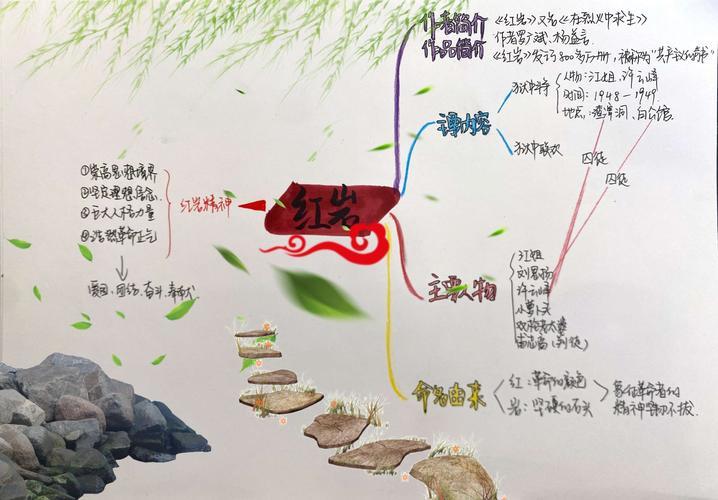 作者简介
作品简介
《红岩》又名《在烈火中永生》
作者罗广斌、杨益言
《红岩》发行800多万册，被称为"共产主义的奇书"
主要内容
狱中斗争
人物：江姐、许云峰
时间：1948-1949
地点：渣滓洞、白公馆
狱中联欢
囚徒
囚徒
红岩
红岩精神
①崇高思想境界
②坚定理想信念
③巨大人格力量
④浩然革命正气
爱国、团结、奋斗、奉献
主要人物
江姐
刘思扬
许云峰
小萝卜头
双枪老太婆
甫志高（叛徒）
命名由来
红：革命的颜色
岩：坚硬的石头
象征革命者的
精神坚韧不拔